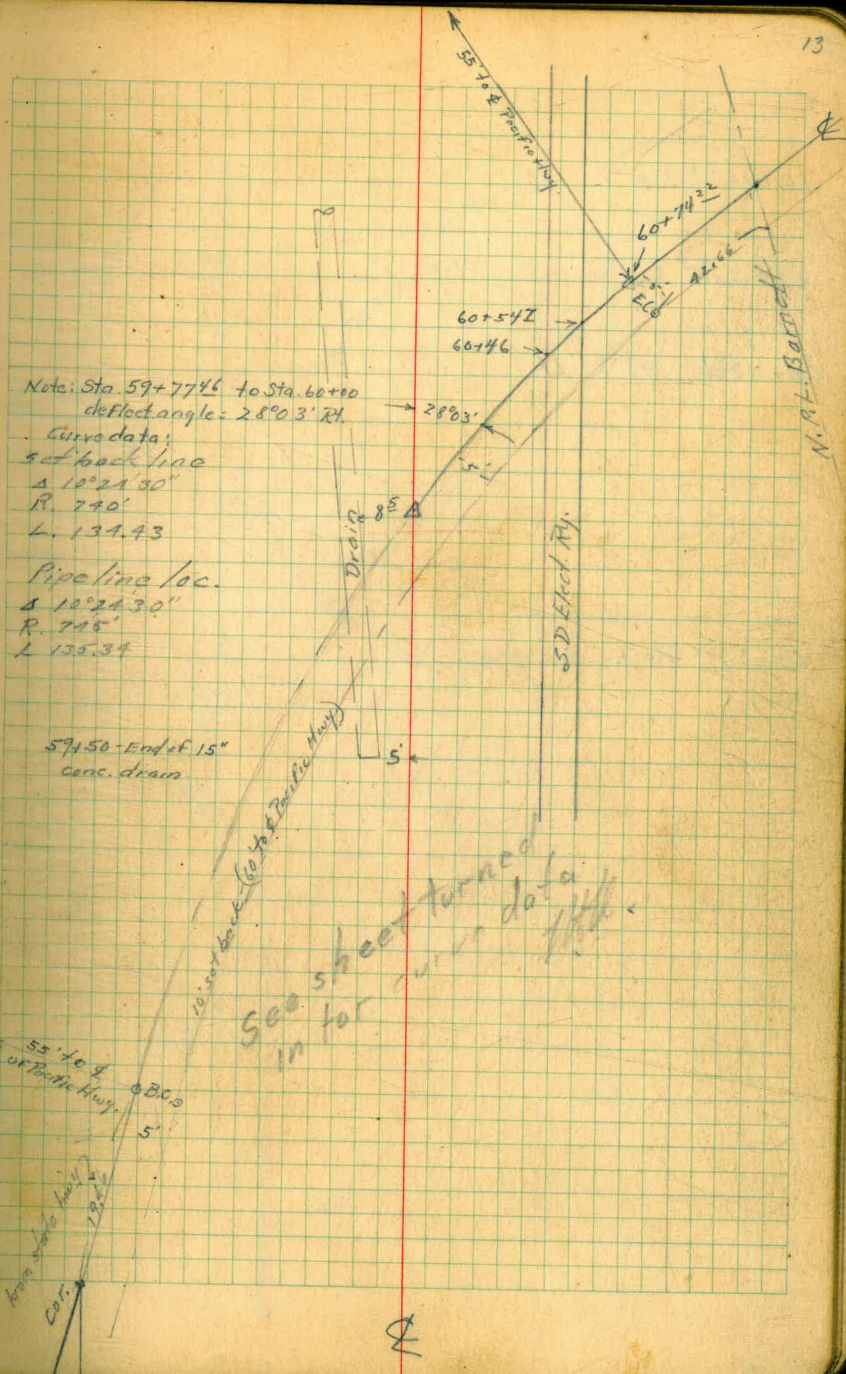 13
55' to ℄ Pacific Hwy.
℄
60+74²²
42.66
E.C.
60+54
60+46
N.P.L. Barnett
Note: Sta 59+77⁴⁶ to Sta. 60+00
deflect angle = 28°03' Rt.
28°03'
Curve data:
set back line
Δ 10°24'30"
R. 740'
L. 134.43
5'
8⁵ Δ
Drain
S.D. Elect. Ry.
Pipe line loc.
Δ 10°24'30"
R. 745'
L 135.34
59+50 - End of 15"
conc. drain
5'
10' set back (60' to ℄ Pacific Hwy)
See sheet turned
in for curve data
55' to ℄
of Pacific Hwy.
B.C.
5'
19.46
from state hwy
Cor.
℄